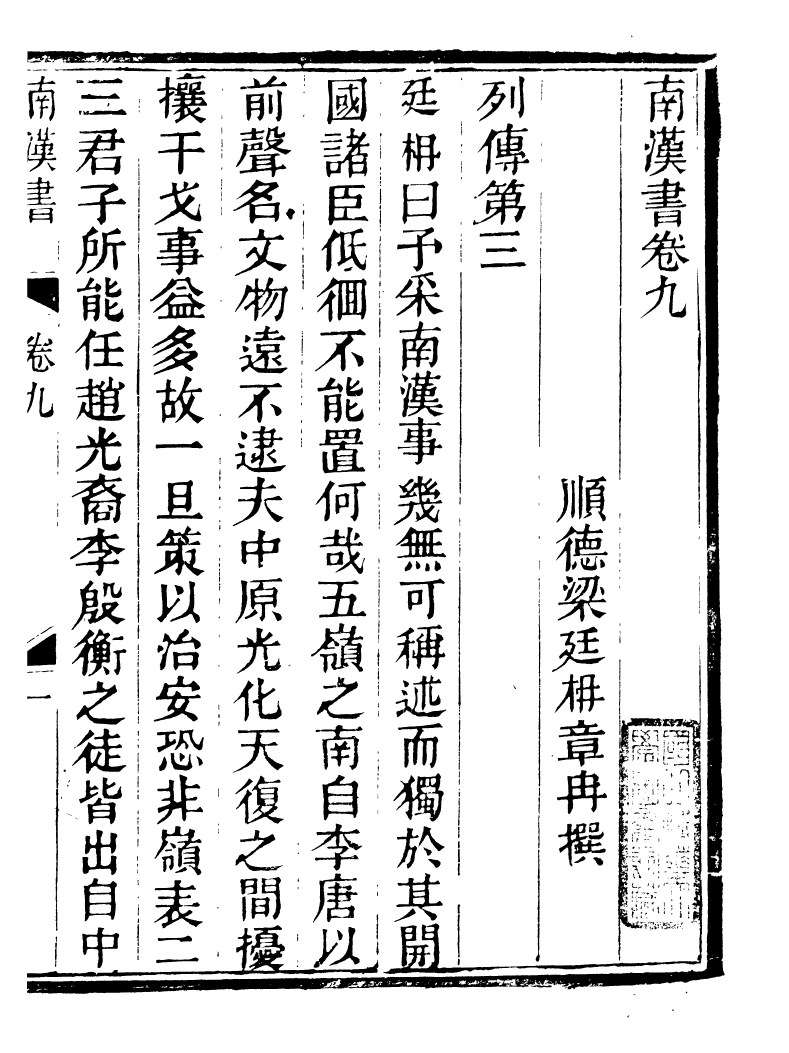 南漢書卷九
順德梁廷枏章冉撰
列傳第三
廷枏曰予采南漢事幾無可稱述而獨於其開
國諸臣低徊不能置何哉五嶺之南自李唐以
前聲名文物遠不逮夫中原光化天復之間擾
攘干戈事益多故一旦策以治安恐非嶺表二
三君子所能任趙光裔李殷衡之徒皆出自中
南漢書
卷九
一